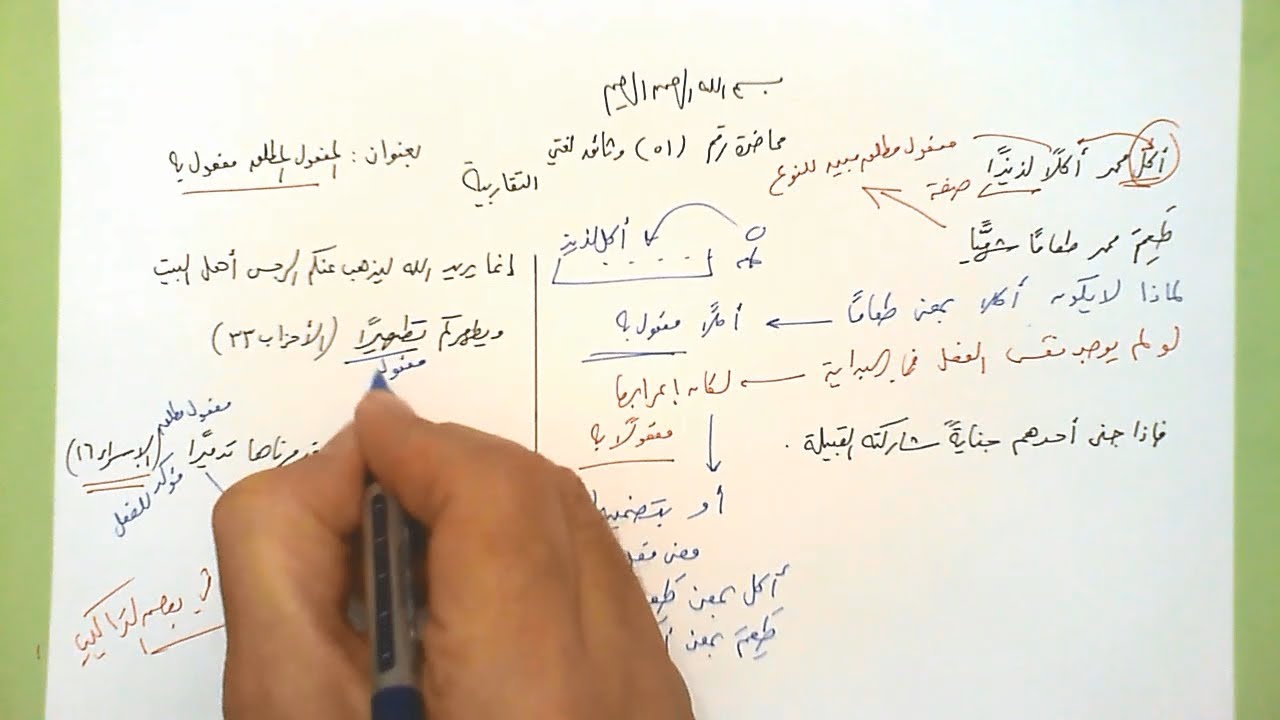 بسم الله الرحمن الرحيم
محاضرة رقم (٥١) وثائق لغتي
التقاربية
بعنوان : المفعول المطلق مفعول به
أكل محمد أكلًا لذيذًا
صفة
مفعول مطلق مبين للنوع
طَعِمَ محمد طعامًا شهيًّا
لماذا لا يكون أكلا بمعنى طعامًا ← أكلًا مفعول به
لو لم يوجد نفس الفعل في البداية ← لكان إعرابها
مفعولًا به
فإذا جنى أحدهم جنايةً شاركته القبيلة .
أكل لذيذ
أو بتضمين
أكل بمعنى طَعِمَ
طَعِمَ بمعنى
إنما يريد الله ليذهب عنكم الرجس أهل البيت
ويطهركم تطهيرًا (الأحزاب ٣٣)
مفعول
تدميرًا (الإسراء ١٦)
مفعول مطلق
مؤكد للفعل